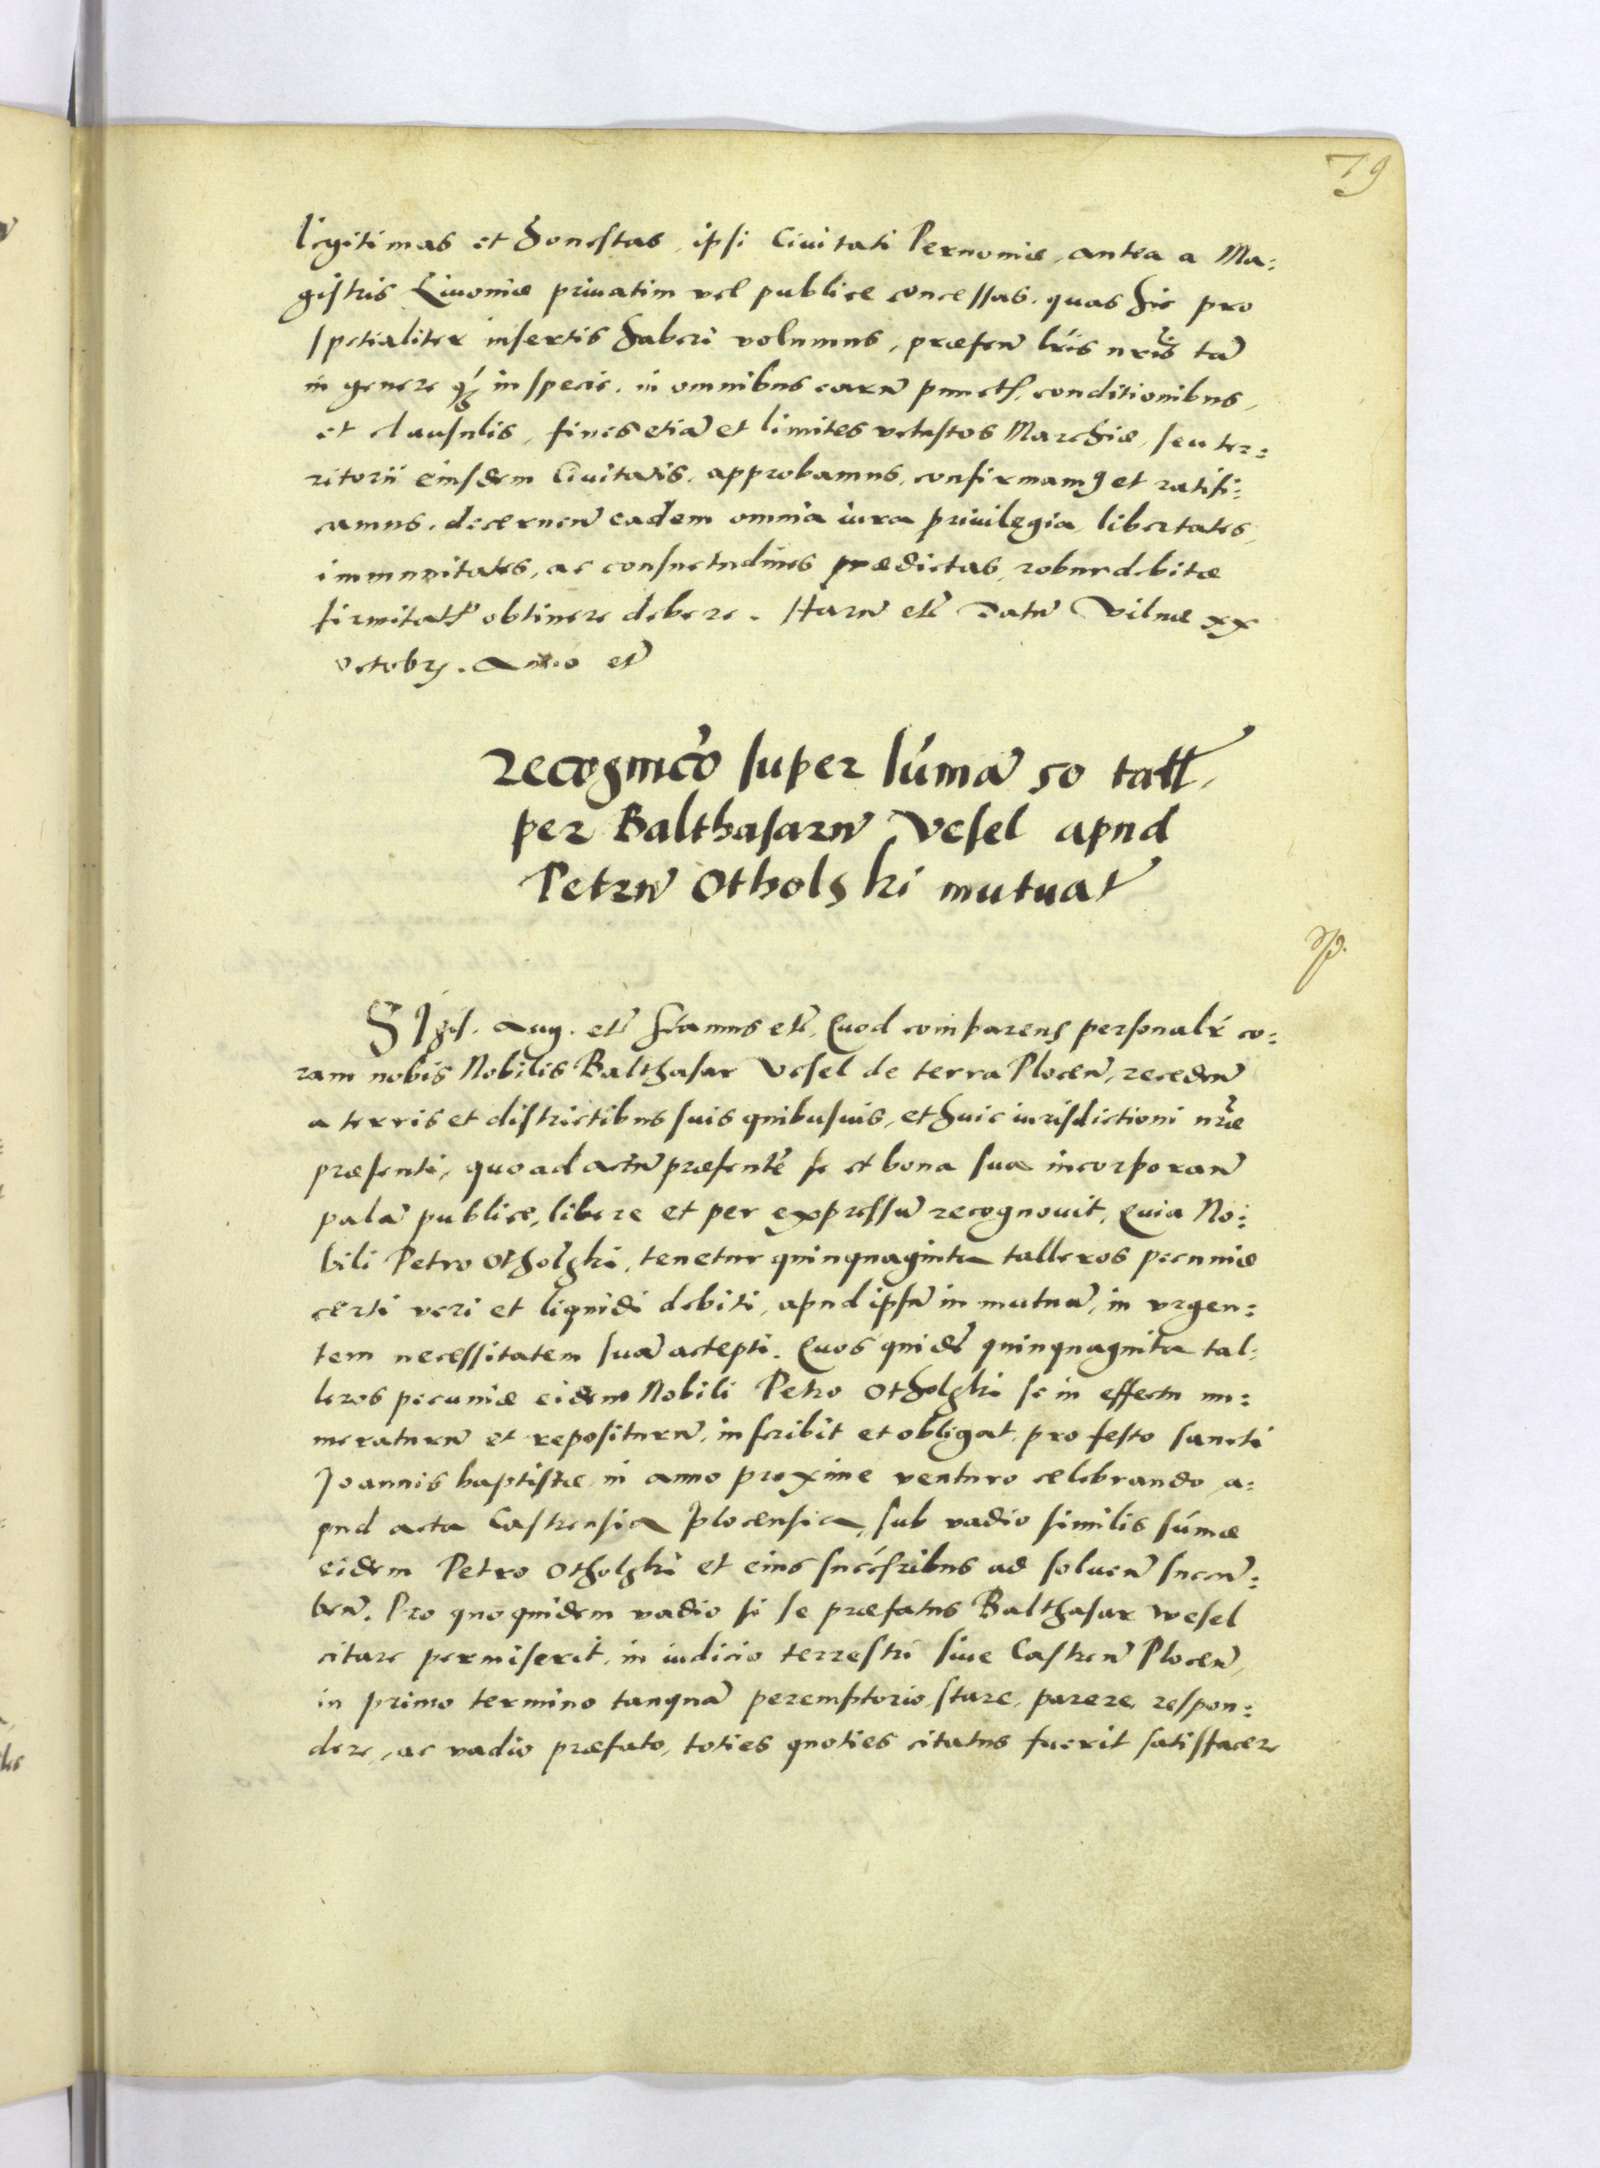 79
legitimas et honestas, ipsi Ciuitati Pernoniæ, antea a Ma:
gistris Liuoniæ priuatim vel publice concessas, quas hic pro
spetialiter insertis haberi volumus, præsen̄ lr̄is nr̄is tā
in genere q̄ḡ in specie, in omnibus earū punct, conditionibus,
et clausulis, fines etiā et limites vetustos Marchiæ, seu ter:
ritorii eiusdem Ciuitatis, approbamus, confirmamꝰ et ratifi:
camus, decernen̄ eadem omnia iura priuilegia, libertates,
immunitates, ac consuetudines prædictas, robur debitæ
firmitat obtinere debere. Harū etc̄ Datū Vilnæ xx
octobr̄. Anno etc̄
Recognicō super sum̄ā 50 tall,
per Balthasarū Vesel apud
Petrū Otholski mutuat
Sigis. Aug. etc̄ sc̄amus etc̄, Quod comparens personalr̄ co:
ram nobis Nobilis Balthasar Vesel de terra Plocen̄, receden̄
a terris et districtibus suis quibusuis, et huic iurisdictioni nr̄æ
præsenti, quo ad actū præsentē se et bona sua incorporan̄
palā publice, libere et per expressū recognouit, Quia No:
bili Petro Otholski, tenetur quinquaginta talleros pecuniæ
certi veri et liquidi debiti, apud ipsū in mutuā, in vrgen:
tem necessitatem suā accepti. Quos quidē quinquaginta tal:
leros pecuniæ eidem Nobili Petro Otholski se in effectu nu:
meraturū et repositurū, inscribit et obligat, pro festo sancti
Joannis baptistæ in anno proxime venturo celebrando, a:
pud acta Castrensia Plocensia, sub vadio similis sum̄æ
eidem Petro Otholski et eius succ̄ribus ad soluen̄ succū:
ben̄. Pro quo quidem vadio si se præfatus Balthasar Wesel
citare permiserit, in iudicio terrestri siue Castren̄ Plocen̄,
in primo termino tanquā peremptorio, stare, parere, respon:
dere, ac vadio præfato, toties quoties citatus fuerit satisfacere